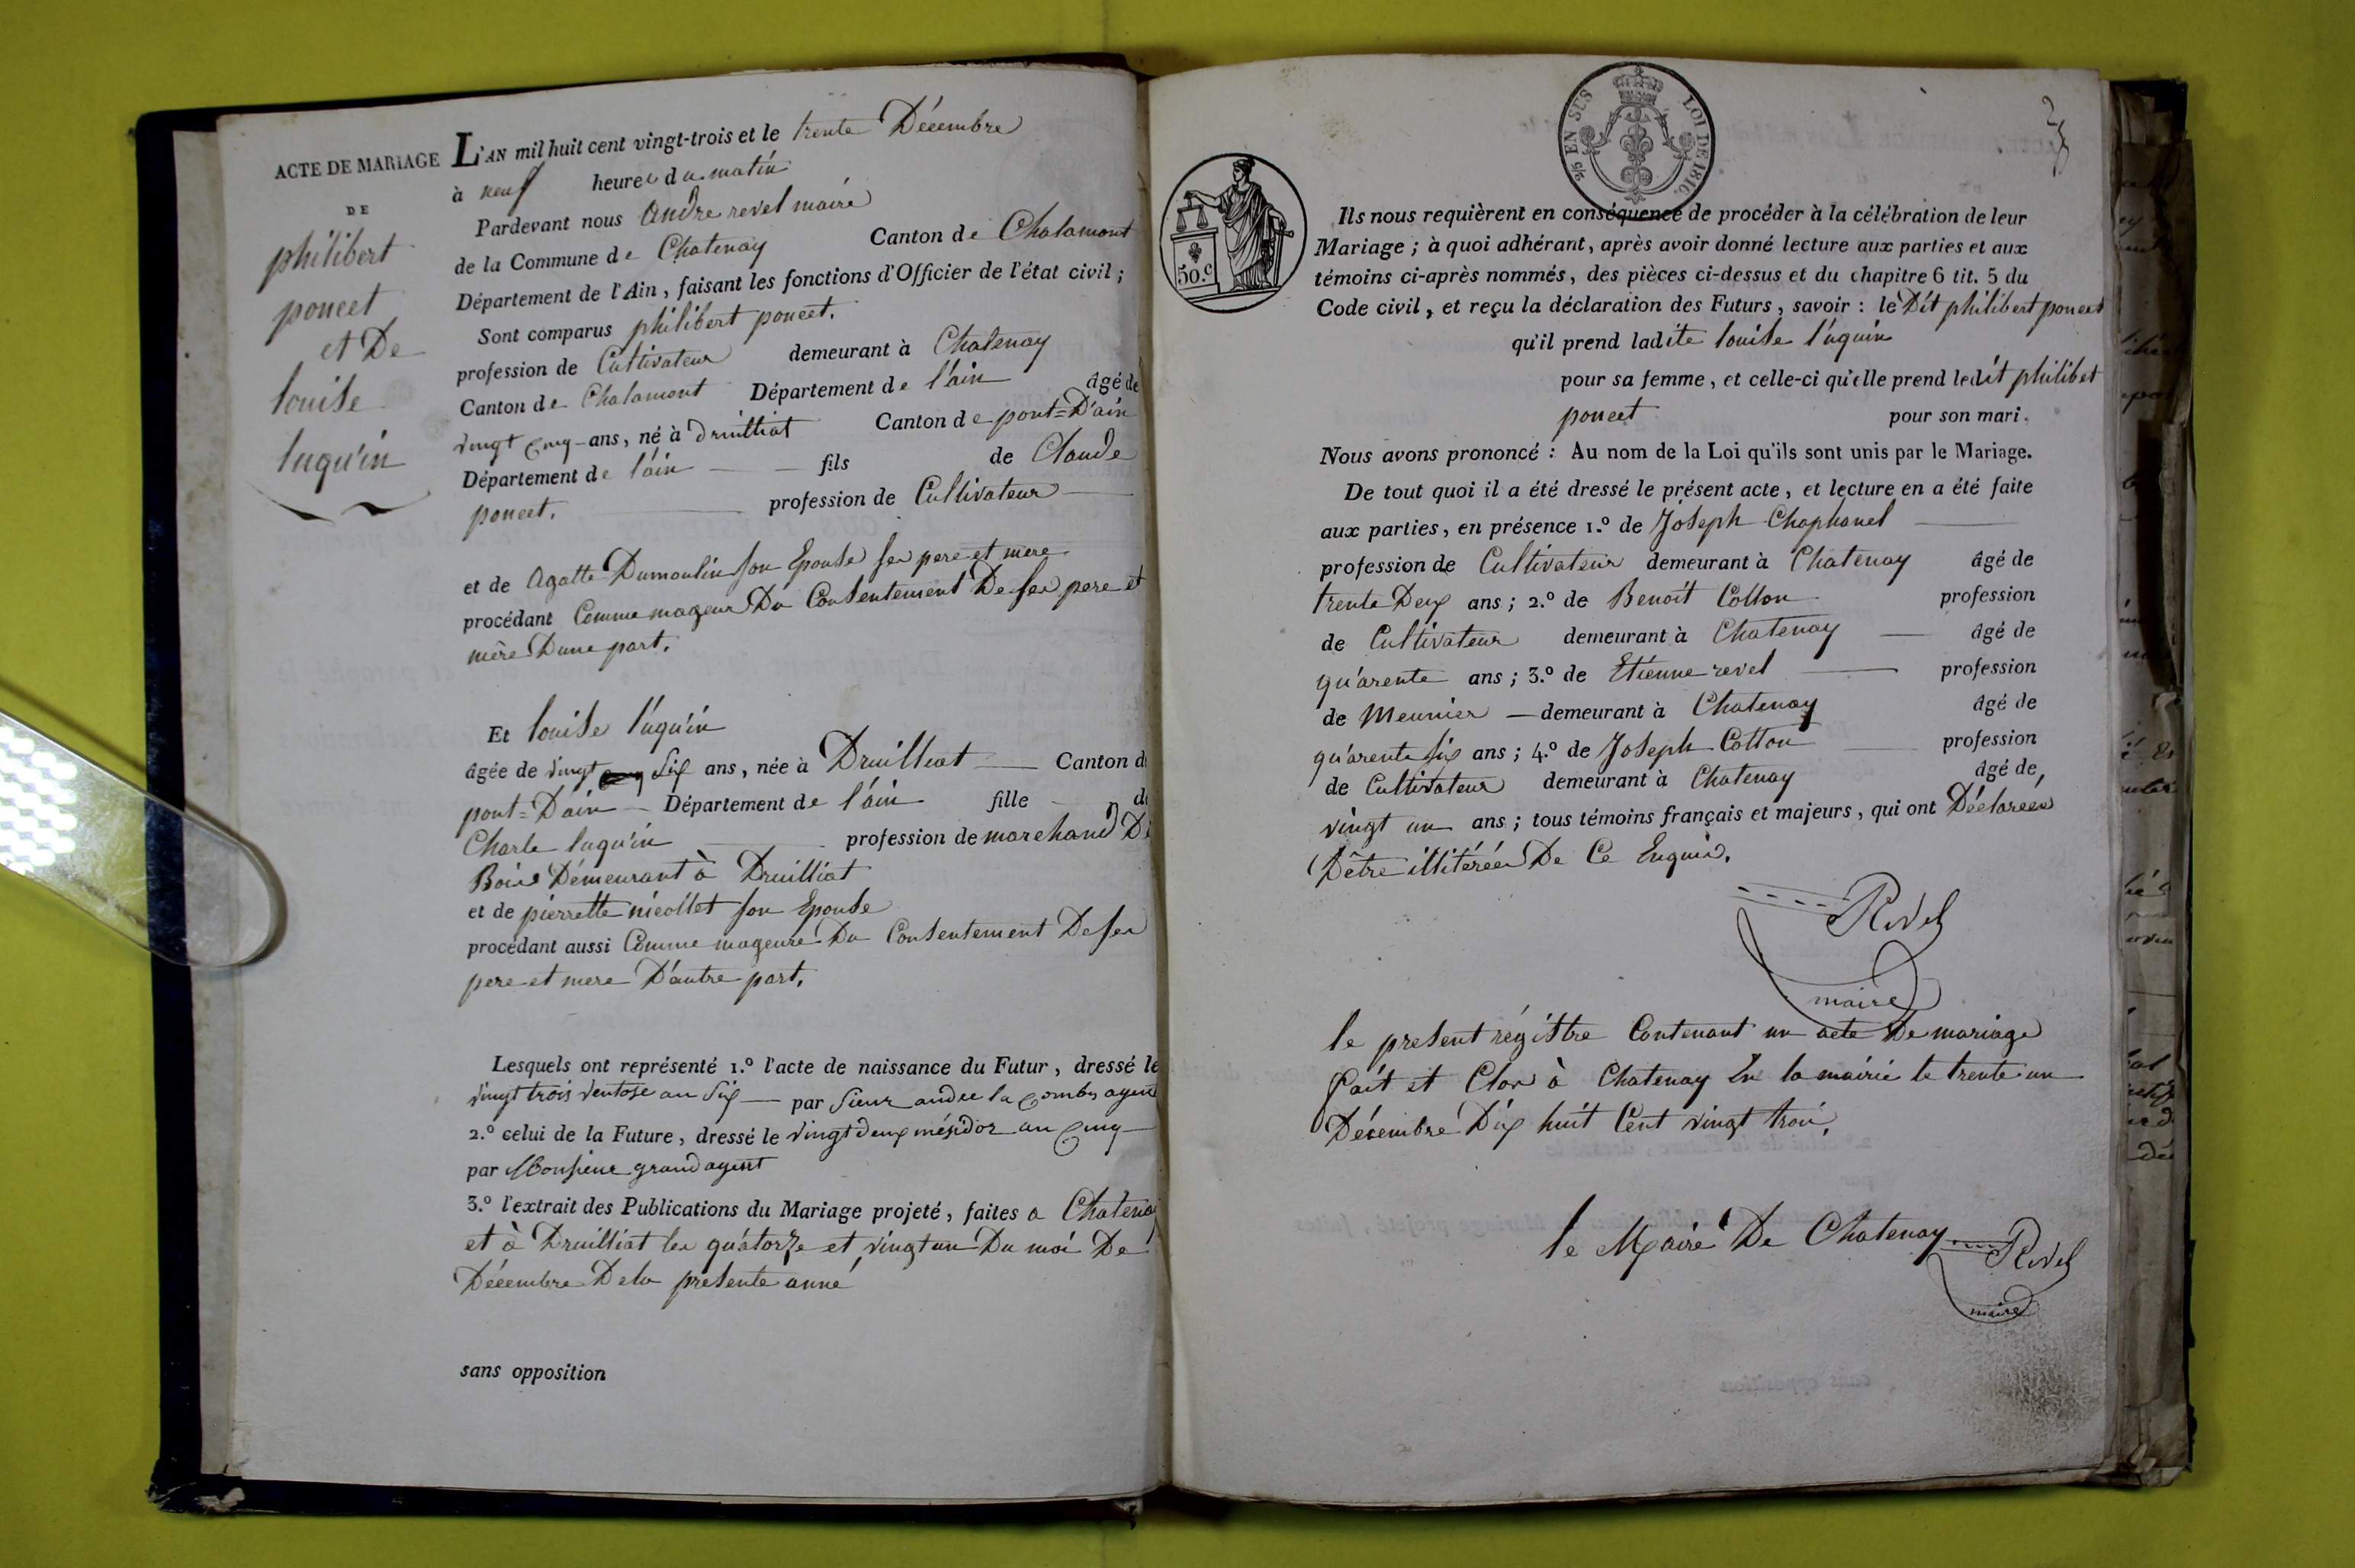 ACTE DE MARIAGE
DE
philibert
poncet
et De
louise
luquin
L'AN mil huit cent vingt-trois et le trente Décembre
à neuf heures du matin
Pardevant nous andre revel maire
de la Commune de Chatenay Canton de Chalamont
Département de l'Ain, faisant les fonctions d'Officier de l'état civil;
Sont comparus philibert poncet.
profession de Cultivateur demeurant à Chatenay
Canton de Chalamont Département de l'ain âgé de
vingt cinq ans, né à druilliat Canton de pont=D'ain
Département de l'ain fils de Claude
poncet. profession de Cultivateur
et de Agatte Dumoulin son Epouse ses pere et mere
procédant Comme mageur Du Consentement De ses pere et
mère Dune part.
Et louise luquin
âgée de vingt six ans, née à Druilliat Canton de
pont=D'ain Département de l'ain fille de
Charle luquin profession de marchand De
Bois Démeurant à Druilliat
et de pierrette nicollet son Epouse
procédant aussi Comme mageure Du Consentement De ses
pere et mere D'autre part.
Lesquels ont représenté 1.º l'acte de naissance du Futur, dressé le
vingt trois ventose an six par sieur la agent
2.º celui de la Future, dressé le vingt deux mésidor an cinq
par Monsieur grand agent
3.º l'extrait des Publications du Mariage projeté, faites a Chatenay
et à Druilliat les quatorze et vingt un Du moi De
Décembre De la présente anné
sans opposition
25 EN SUS LOI DE 1816.
50.c
Ils nous requièrent en conséquence de procéder à la célébration de leur
Mariage; à quoi adhérant, après avoir donné lecture aux parties et aux
témoins ci-après nommés, des pièces ci-dessus et du chapitre 6 tit. 5 du
Code civil, et reçu la déclaration des Futurs, savoir: le Dit philibert poncet
qu'il prend ladite louise luquin
pour sa femme, et celle-ci qu'elle prend ledit philibet
poncet pour son mari.
Nous avons prononcé: Au nom de la Loi qu'ils sont unis par le Mariage.
De tout quoi il a été dressé le présent acte, et lecture en a été faite
aux parties, en présence 1.º de Joseph Chaphanel
profession de Cultivateur demeurant à Chatenay âgé de
trente Deux ans; 2.º de Benoit Cotton profession
de Cultivateur demeurant à Chatenay âgé de
quarente ans; 3.º de Etienne revel profession
de Meunier demeurant à Chatenay âgé de
quarente six ans; 4.º de Joseph Cotton profession
de Cultivateur demeurant à Chatenay âgé de
vingt un ans; tous témoins français et majeurs, qui ont Déclarées
D'être illitérées De Ce Enquis.
Revel
maire
le present régistre Contenant un acte De mariage
fait et Clos à Chatenay En la mairie le trente un
Décembre Dix huit Cent vingt trois.
le Maire De Chatenay Revel
maire